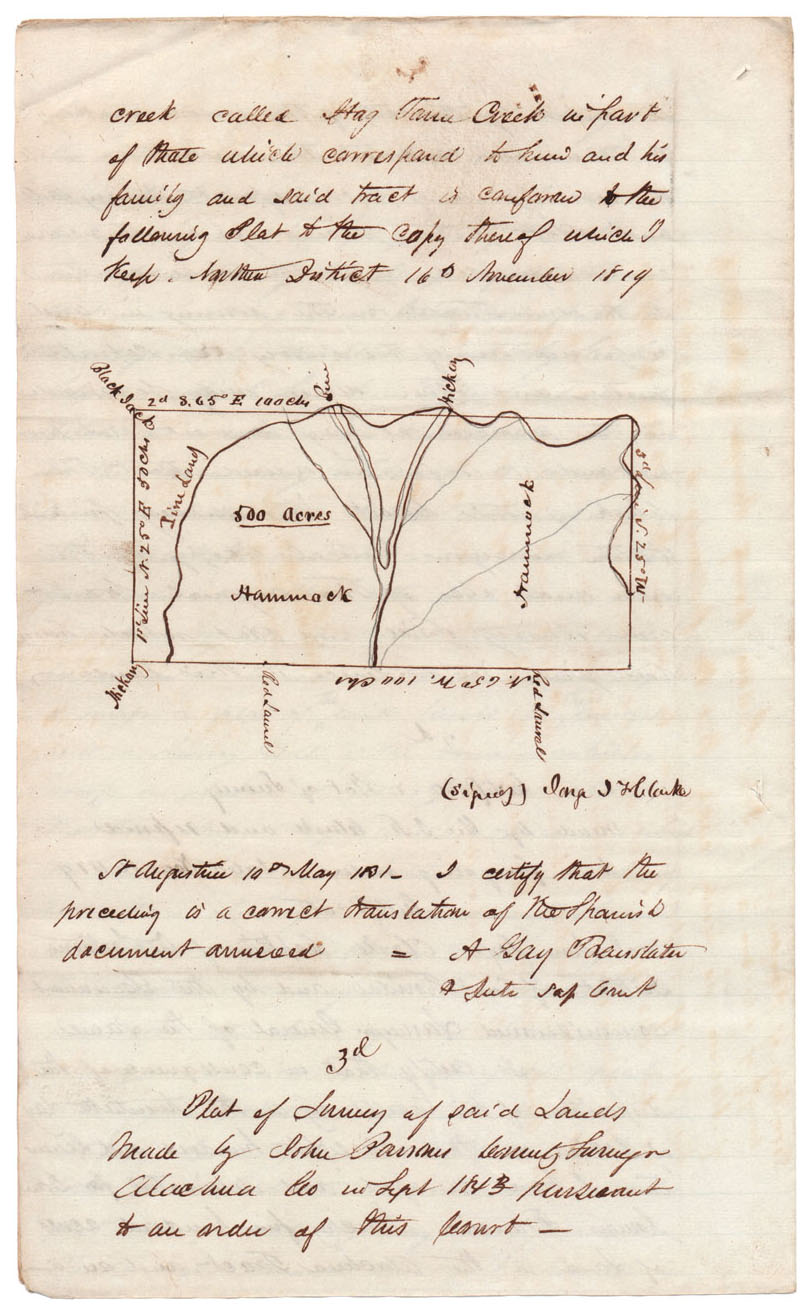 creek called Hog Town Creek in part
of those which correspond to him and his
family and said tract is conform to the
following Plat & the Copy thereof which I
Keep. Northern District 16th November 1819
Black Jack
2d S. 65° E 100 chs
Pine
Hickory
1st Line N. 25° E 50 chs
Pine Land
500 Acres
Hammock
Hammock
3d Line S. 25° W
Hickory
Red Laurel
N. 65° W. 100 chs
Red Laurel
(Signed) Geo J F Clarke
St Augustine 10th May 1831 - I certify that the
preceding is a correct translation of the Spanish
document annexed = A Gay Translater
& Inte Sup Court
3d
Plat of Survey of said Lands
Made by John Parsons County Surveyor
Alachua Co in Sept 1843 pursuant
to an order of this Court —